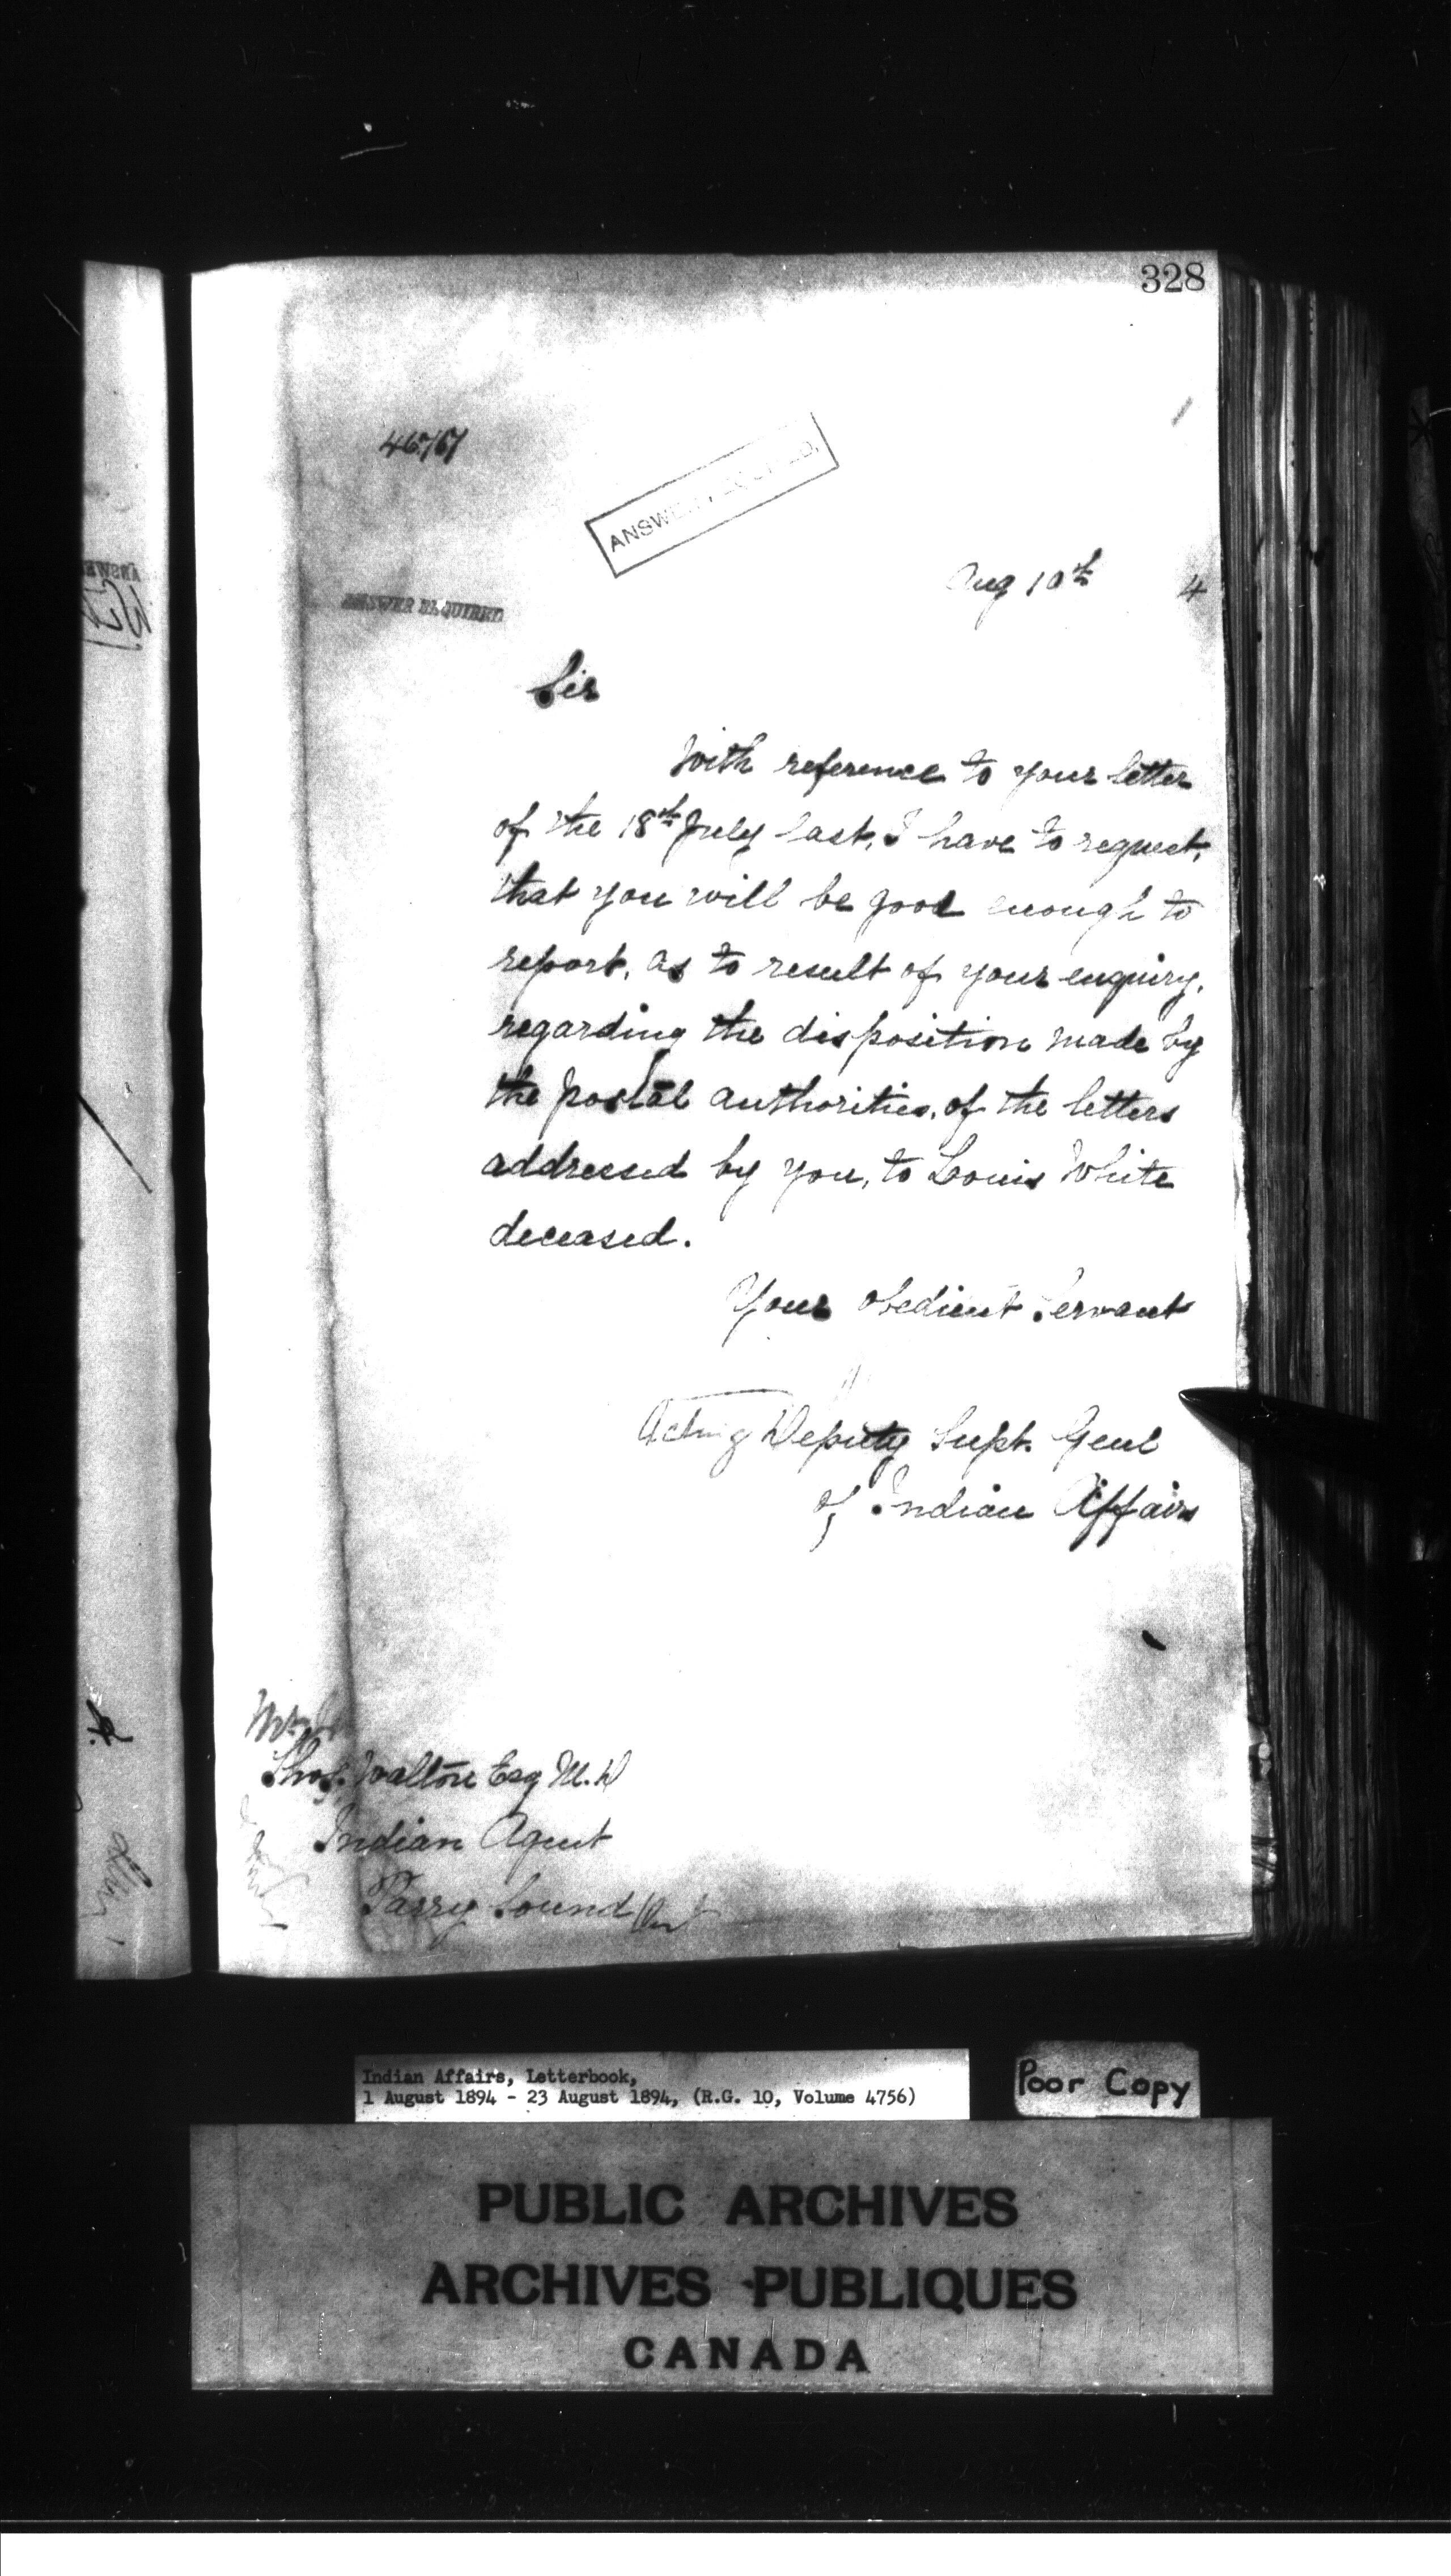 328
46767
ANSWER REQUIRED
ANSWER REQUIRED
Aug 10th 4
Sir
With reference to your letter
of the 18th July last, I have to request,
that you will be good enough to
report, as to result of your enquiry,
regarding the disposition made by
the postal authorities, of the letters
addressed by you, to Louis White
deceased.
Your obedient Servant
Acting Deputy Supt. Genl
of Indian Affairs
Thos. Walton Esq M.D
Indian Agent
Parry Sound Ont
Indian Affairs, Letterbook,
1 August 1894 - 23 August 1894, (R.G. 10, Volume 4756)
Poor Copy
PUBLIC ARCHIVES
ARCHIVES PUBLIQUES
CANADA